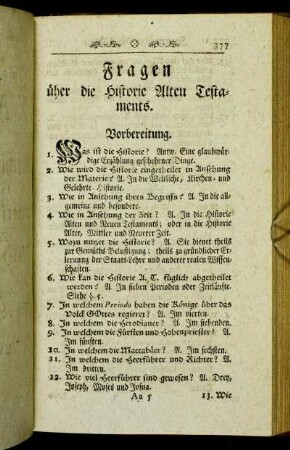 377
Fragen
über die Historie Alten Testa-
ments.
Vorbereitung.
1. Was ist die Historie? Antw. Eine glaubwür-
dige Erzählung geschehener Dinge.
2. Wie wird die Historie eingetheilet in Ansehung
der Materie? A. In die Weltliche, Kirchen- und
Gelehrte-Historie.
3. Wie in Ansehung ihres Begriffs? A. In die all-
gemeine und besondere.
4. Wie in Ansehung der Zeit? A. In die Historie
Alten und Neuen Testaments; oder in die Historie
Alter, Mittler und Neuerer Zeit.
5. Wozu nutzet die Historie? A. Sie dienet theils
zur Gemüths Belustigung, theils zu gründlicher Er-
lernung der Staats-Lehre und anderer realen Wissen-
schaften.
6. Wie kan die Historie A. T. füglich abgetheilet
werden? A. In sieben Perioden oder Zeitläufte.
Siehe §. 5.
7. In welchem Periodo haben die Könige über das
Volck GOttes regieret? A. Im vierten.
8. In welchem die Herodianer? A. Im siebenden.
9. In welchem die Fürsten und Hohenpriester? A.
Im fünften.
10. In welchem die Maccabäer? A. Im sechsten.
11. In welchem die Heerführer und Richter? A.
Im dritten.
12. Wie viel Heerführer sind gewesen? A. Drey,
Joseph, Moses und Josua.
Aa 5
13. Wie